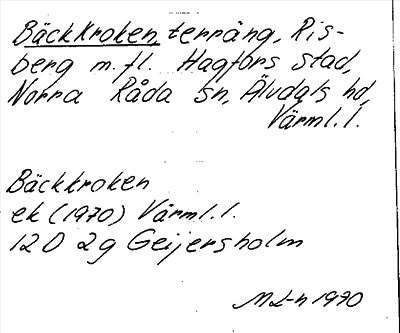 Bäckkroken, terräng, Ris-
berg m.fl. Hagfors stad,
Norra Råda sn, Älvdals hd,
Värml.l.
Bäckkroken
ek (1970) Värml.l.
12 D 2g Geijersholm
ML-n 1970